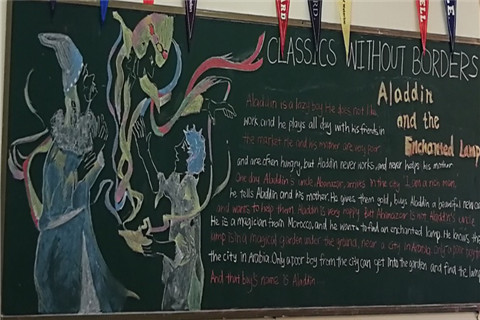 CLASSICS WITHOUT BORDERS
Aladdin
and the
Enchanted Lamp
Aladdin is a lazy boy. He does not like
work and he plays all day with his friends in
the market. He and his mother are very poor
and are often hungry, but Aladdin never works, and never helps his mother.
One day Aladdin's uncle, Abanazar, arrives in the city. I am a rich man,
he tells Aladdin and his mother. He gives them gold, buys Aladdin a beautiful new
and wants to help them. Aladdin is very happy. But Abanazar is not Aladdin's uncle
He is a magician from Morocco, and he wants to find an enchanted lamp. He knows the
lamp is in a magical garden under the ground, near a city in Arabia. Only a poor boy from
the city in Arabia. Only a poor boy from the city can get into the garden and find the lamp
And that boy's name is Aladdin...